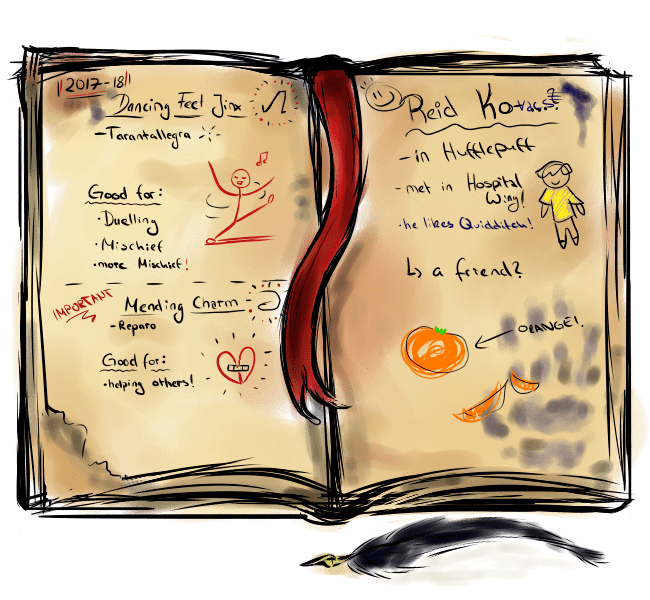 2017-18
Dancing Feet Jinx
-Tarantallegra
Good for:
•Duelling
•Mischief
•more Mischief!
IMPORTANT
Mending Charm
-Reparo
Good for:
•helping others!
Reid
-in Hufflepuff
-met in Hospital
Wing!
•he likes Quidditch!
↳ a friend?
ORANGE!